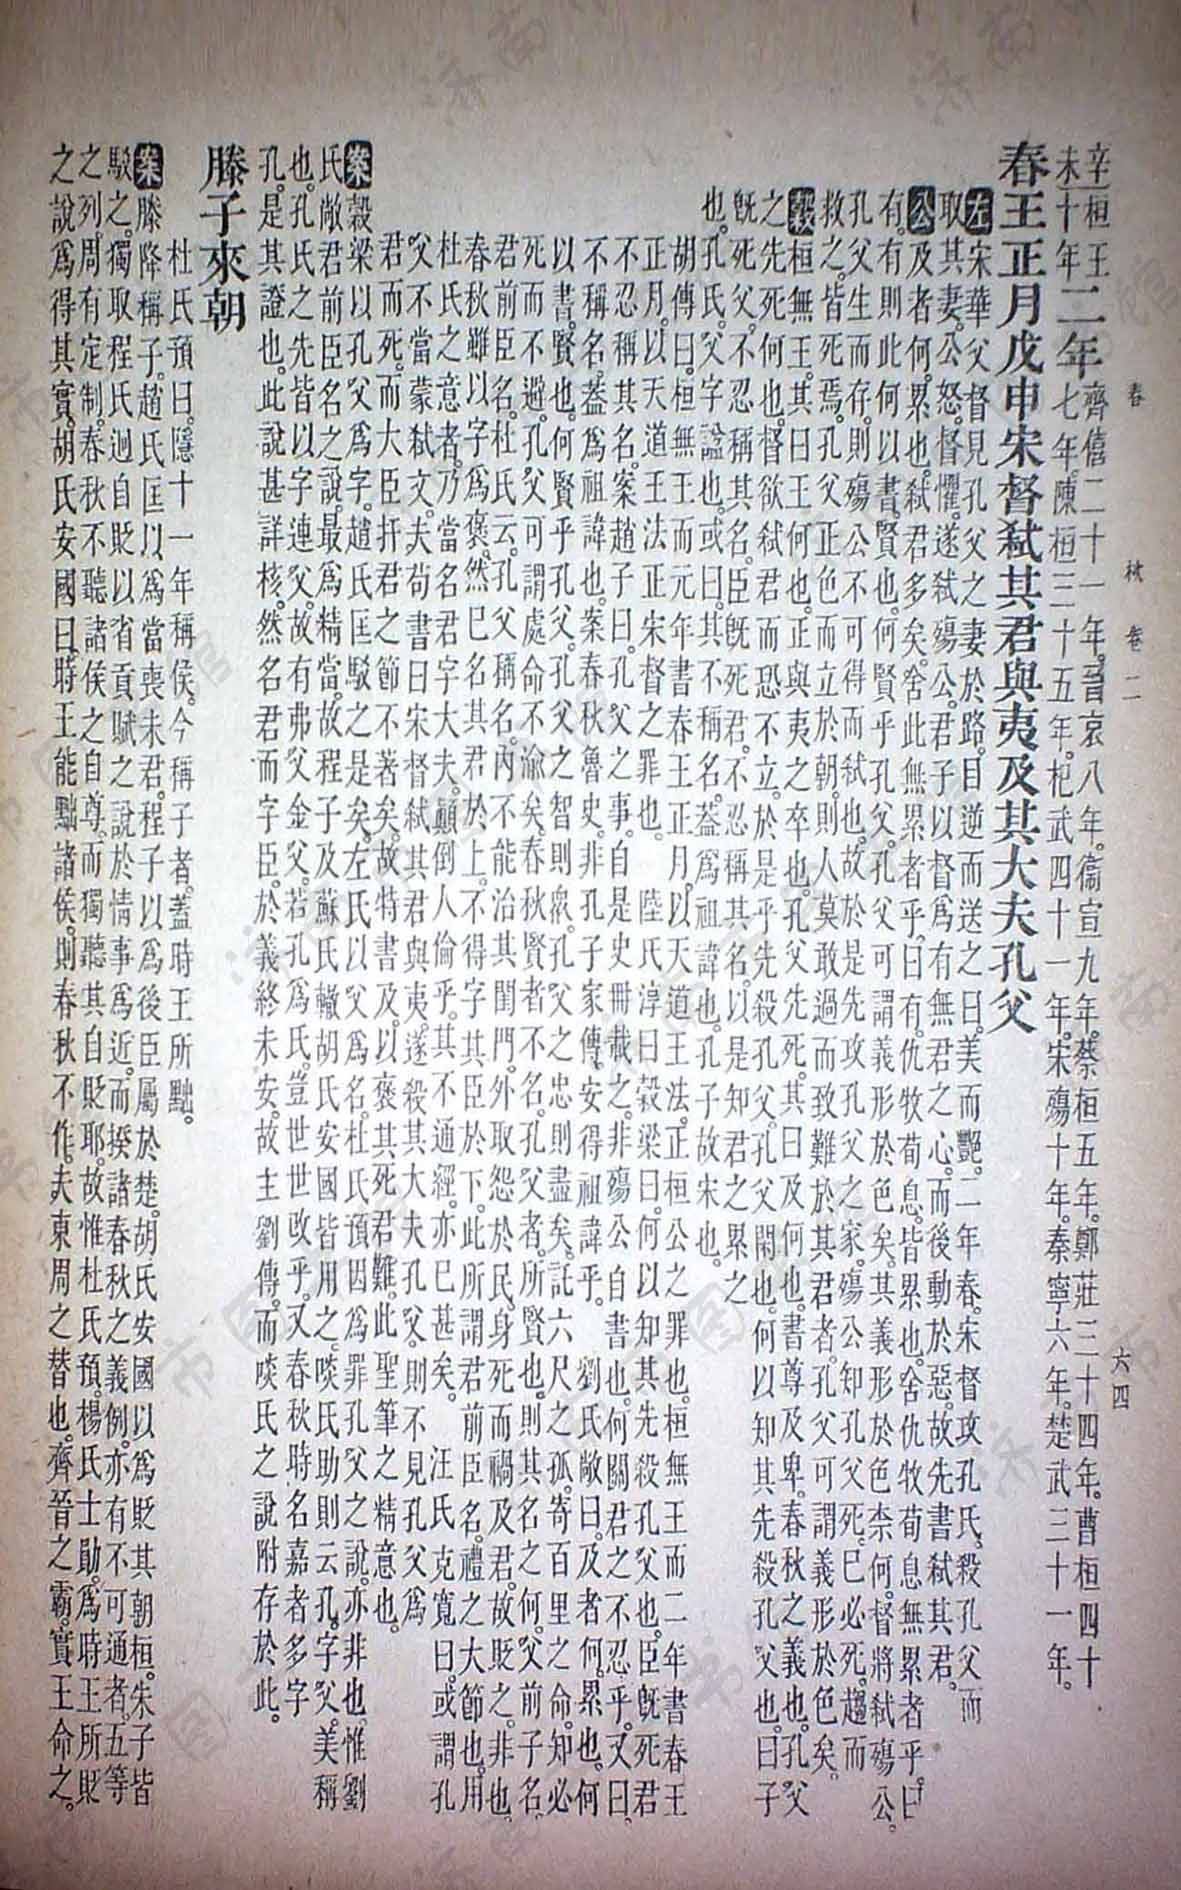 春秋卷二 六四
辛未 桓王十年二年 齊僖二十一年。晉哀八年。衞宣九年。蔡桓五年。鄭莊三十四年。曹桓四十
七年。陳桓三十五年。杞武四十一年。宋殤十年。秦寧六年。楚武三十一年。
春王正月戊申宋督弒其君與夷及其大夫孔父
左宋華父督見孔父之妻於路。目逆而送之曰。美而豔。二年春。宋督攻孔氏。殺孔父而
取其妻。公怒。督懼。遂弒殤公。君子以督爲有無君之心。而後動於惡。故先書弒其君。
公及者何。累也。弒君多矣。舍此無累者乎。曰有。仇牧荀息。皆累也。舍仇牧荀息無累者乎。曰
有。有則此何以書。賢也。何賢乎孔父。孔父可謂義形於色矣。其義形於色柰何。督將弒殤公。
孔父生而存。則殤公不可得而弒也。故於是先攻孔父之家。殤公知孔父死。已必死。趨而
救之。皆死焉。孔父正色而立於朝。則人莫敢過而致難於其君者。孔父可謂義形於色矣。
穀桓無王。其曰王何也。正與夷之卒也。孔父先死。其曰及何也。書尊及卑。春秋之義也。孔父
之先死何也。督欲弒君而恐不立。於是乎先殺孔父。孔父閑也。何以知其先殺孔父也。曰子
既死。父不忍稱其名。臣既死。君不忍稱其名。以是知君之累之
也。孔氏。父字諡也。或曰。其不稱名。蓋爲祖諱也。孔子故宋也。
胡傳曰。桓無王而元年書春王正月。以天道王法。正桓公之罪也。桓無王而二年書春王
正月。以天道王法正宋督之罪也。 陸氏淳曰。穀梁曰。何以知其先殺孔父也。臣既死君
不忍稱其名。案趙子曰。孔父之事。自是史冊載之。非殤公自書也。何關君之不忍乎。又曰。
不稱名。蓋爲祖諱也。案春秋魯史。非孔子家傳。安得祖諱乎。 劉氏敞曰。及者何。累也。何
以書。賢也。何賢乎孔父。孔父之智則眾。孔父之忠則盡矣。託六尺之孤。寄百里之命。知必
死而不避。孔父可謂處命不渝矣。春秋賢者不名。孔父者。所賢也。則其名之何。父前子名。
君前臣名。杜氏云。孔父稱名。內不能治其閨門。外取怨於民。身死而禍及君。故貶之。非也。
春秋雖以字爲褒。然已名其君於上。不得字其臣於下。此所謂君前臣名。禮之大節也。用
杜氏之意者。乃當名君字大夫。顛倒人倫乎。其不通經。亦已甚矣。 汪氏克寬曰。或謂孔
父不當蒙弒文。夫苟書曰宋督弒其君與夷。遂殺其大夫孔父。則不見孔父爲
君而死。而大臣扞君之節不著矣。故特書及。以褒其死君難。此聖筆之精意也。
案穀梁以孔父爲字。趙氏匡駁之是矣。左氏以父爲名。杜氏預因爲罪孔父之說。亦非也。惟劉
氏敞君前臣名之說。最爲精當。故程子及蘇氏轍胡氏安國皆用之。啖氏助則云孔。字父。美稱
也。孔氏之先。皆以字連父。故有弗父金父。若孔爲氏。豈世世改乎。又春秋時名嘉者多字
孔。是其證也。此說甚詳核。然名君而字臣。於義終未安。故主劉傳。而啖氏之說附存於此。
滕子來朝
杜氏預曰。隱十一年稱侯。今稱子者。蓋時王所黜。
案滕降稱子。趙氏匡以爲當喪未君。程子以爲後臣屬於楚。胡氏安國以爲貶其朝桓。朱子皆
駁之。獨取程氏迥自貶以省貢賦之說。於情事爲近。而揆諸春秋之義例。亦有不可通者。五等
之列。周有定制。春秋不聽諸侯之自尊。而獨聽其自貶耶。故惟杜氏預。楊氏士勛。爲時王所貶
之說爲得其實。胡氏安國曰。時王能黜諸侯。則春秋不作。夫東周之替也。齊晉之霸。實王命之。